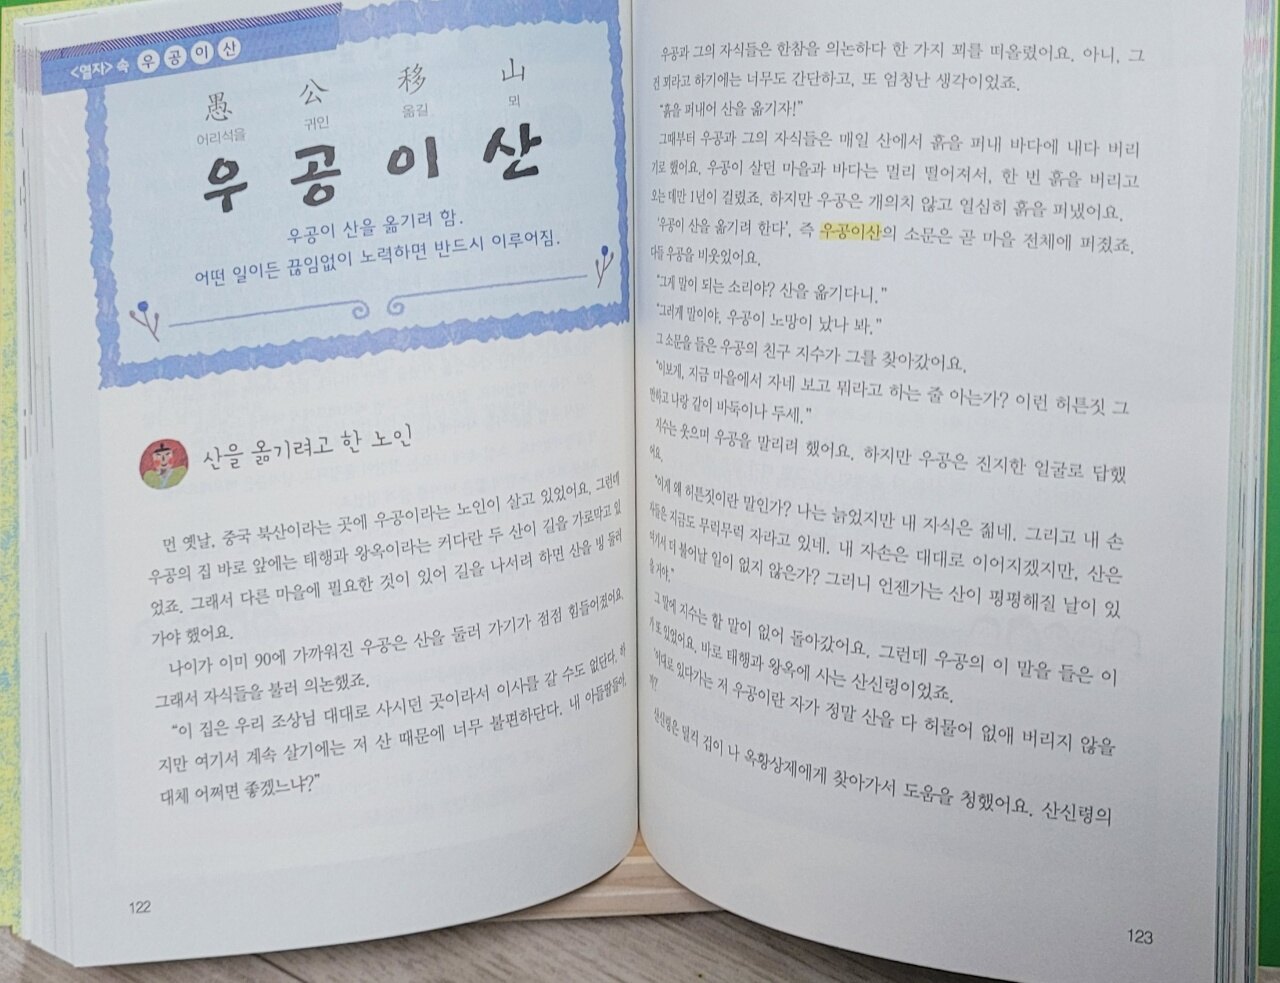 <열자> 속 우공이산
愚 公 移 山
어리석을 귀인 옮길 뫼
우공이산
우공이 산을 옮기려 함.
어떤 일이든 끊임없이 노력하면 반드시 이루어짐.
산을 옮기려고 한 노인
먼 옛날, 중국 북산이라는 곳에 우공이라는 노인이 살고 있었어요. 그런데
우공의 집 바로 앞에는 태행과 왕옥이라는 커다란 두 산이 길을 가로막고 있
었죠. 그래서 다른 마을에 필요한 것이 있어 길을 나서려 하면 산을 빙 둘러
가야 했어요.
나이가 이미 90에 가까워진 우공은 산을 둘러 가기가 점점 힘들어졌어요.
그래서 자식들을 불러 의논했죠.
“이 집은 우리 조상님 대대로 사시던 곳이라서 이사를 갈 수도 없단다. 하
지만 여기서 계속 살기에는 저 산 때문에 너무 불편하단다. 내 아들딸들아,
대체 어쩌면 좋겠느냐?”
122
우공과 그의 자식들은 한참을 의논하다 한 가지 꾀를 떠올렸어요. 아니, 그
건 꾀라고 하기에는 너무도 간단하고, 또 엄청난 생각이었죠.
“흙을 퍼내어 산을 옮기자!”
그때부터 우공과 그의 자식들은 매일 산에서 흙을 퍼내 바다에 내다 버리
기로 했어요. 우공이 살던 마을과 바다는 멀리 떨어져서, 한 번 흙을 버리고
오는 데만 1년이 걸렸죠. 하지만 우공은 개의치 않고 열심히 흙을 퍼냈어요.
‘우공이 산을 옮기려 한다’, 즉 우공이산의 소문은 곧 마을 전체에 퍼졌죠.
다들 우공을 비웃었어요.
“그게 말이 되는 소리야? 산을 옮기다니.”
“그러게 말이야. 우공이 노망이 났나 봐.”
그 소문을 들은 우공의 친구 지수가 그를 찾아갔어요.
“이보게, 지금 마을에서 자네 보고 뭐라고 하는 줄 아는가? 이런 허튼짓 그
만하고 나랑 같이 바둑이나 두세.”
지수는 웃으며 우공을 말리려 했어요. 하지만 우공은 진지한 얼굴로 답했
어요.
“이게 왜 허튼짓이란 말인가? 나는 늙었지만 내 자식은 젊네. 그리고 내 손
자들은 지금도 무럭무럭 자라고 있네. 내 자손은 대대로 이어지겠지만, 산은
여기서 더 불어날 일이 없지 않은가? 그러니 언젠가는 산이 평평해질 날이 있
을 거야.”
그 말에 지수는 할 말이 없어 돌아갔어요. 그런데 우공의 이 말을 들은 이
가 또 있었어요. 바로 태행과 왕옥에 사는 산신령이었죠.
‘이대로 있다가는 저 우공이란 자가 정말 산을 다 허물어 없애 버리지 않을
까?’
산신령은 덜컥 겁이 나 옥황상제에게 찾아가서 도움을 청했어요. 산신령의
123